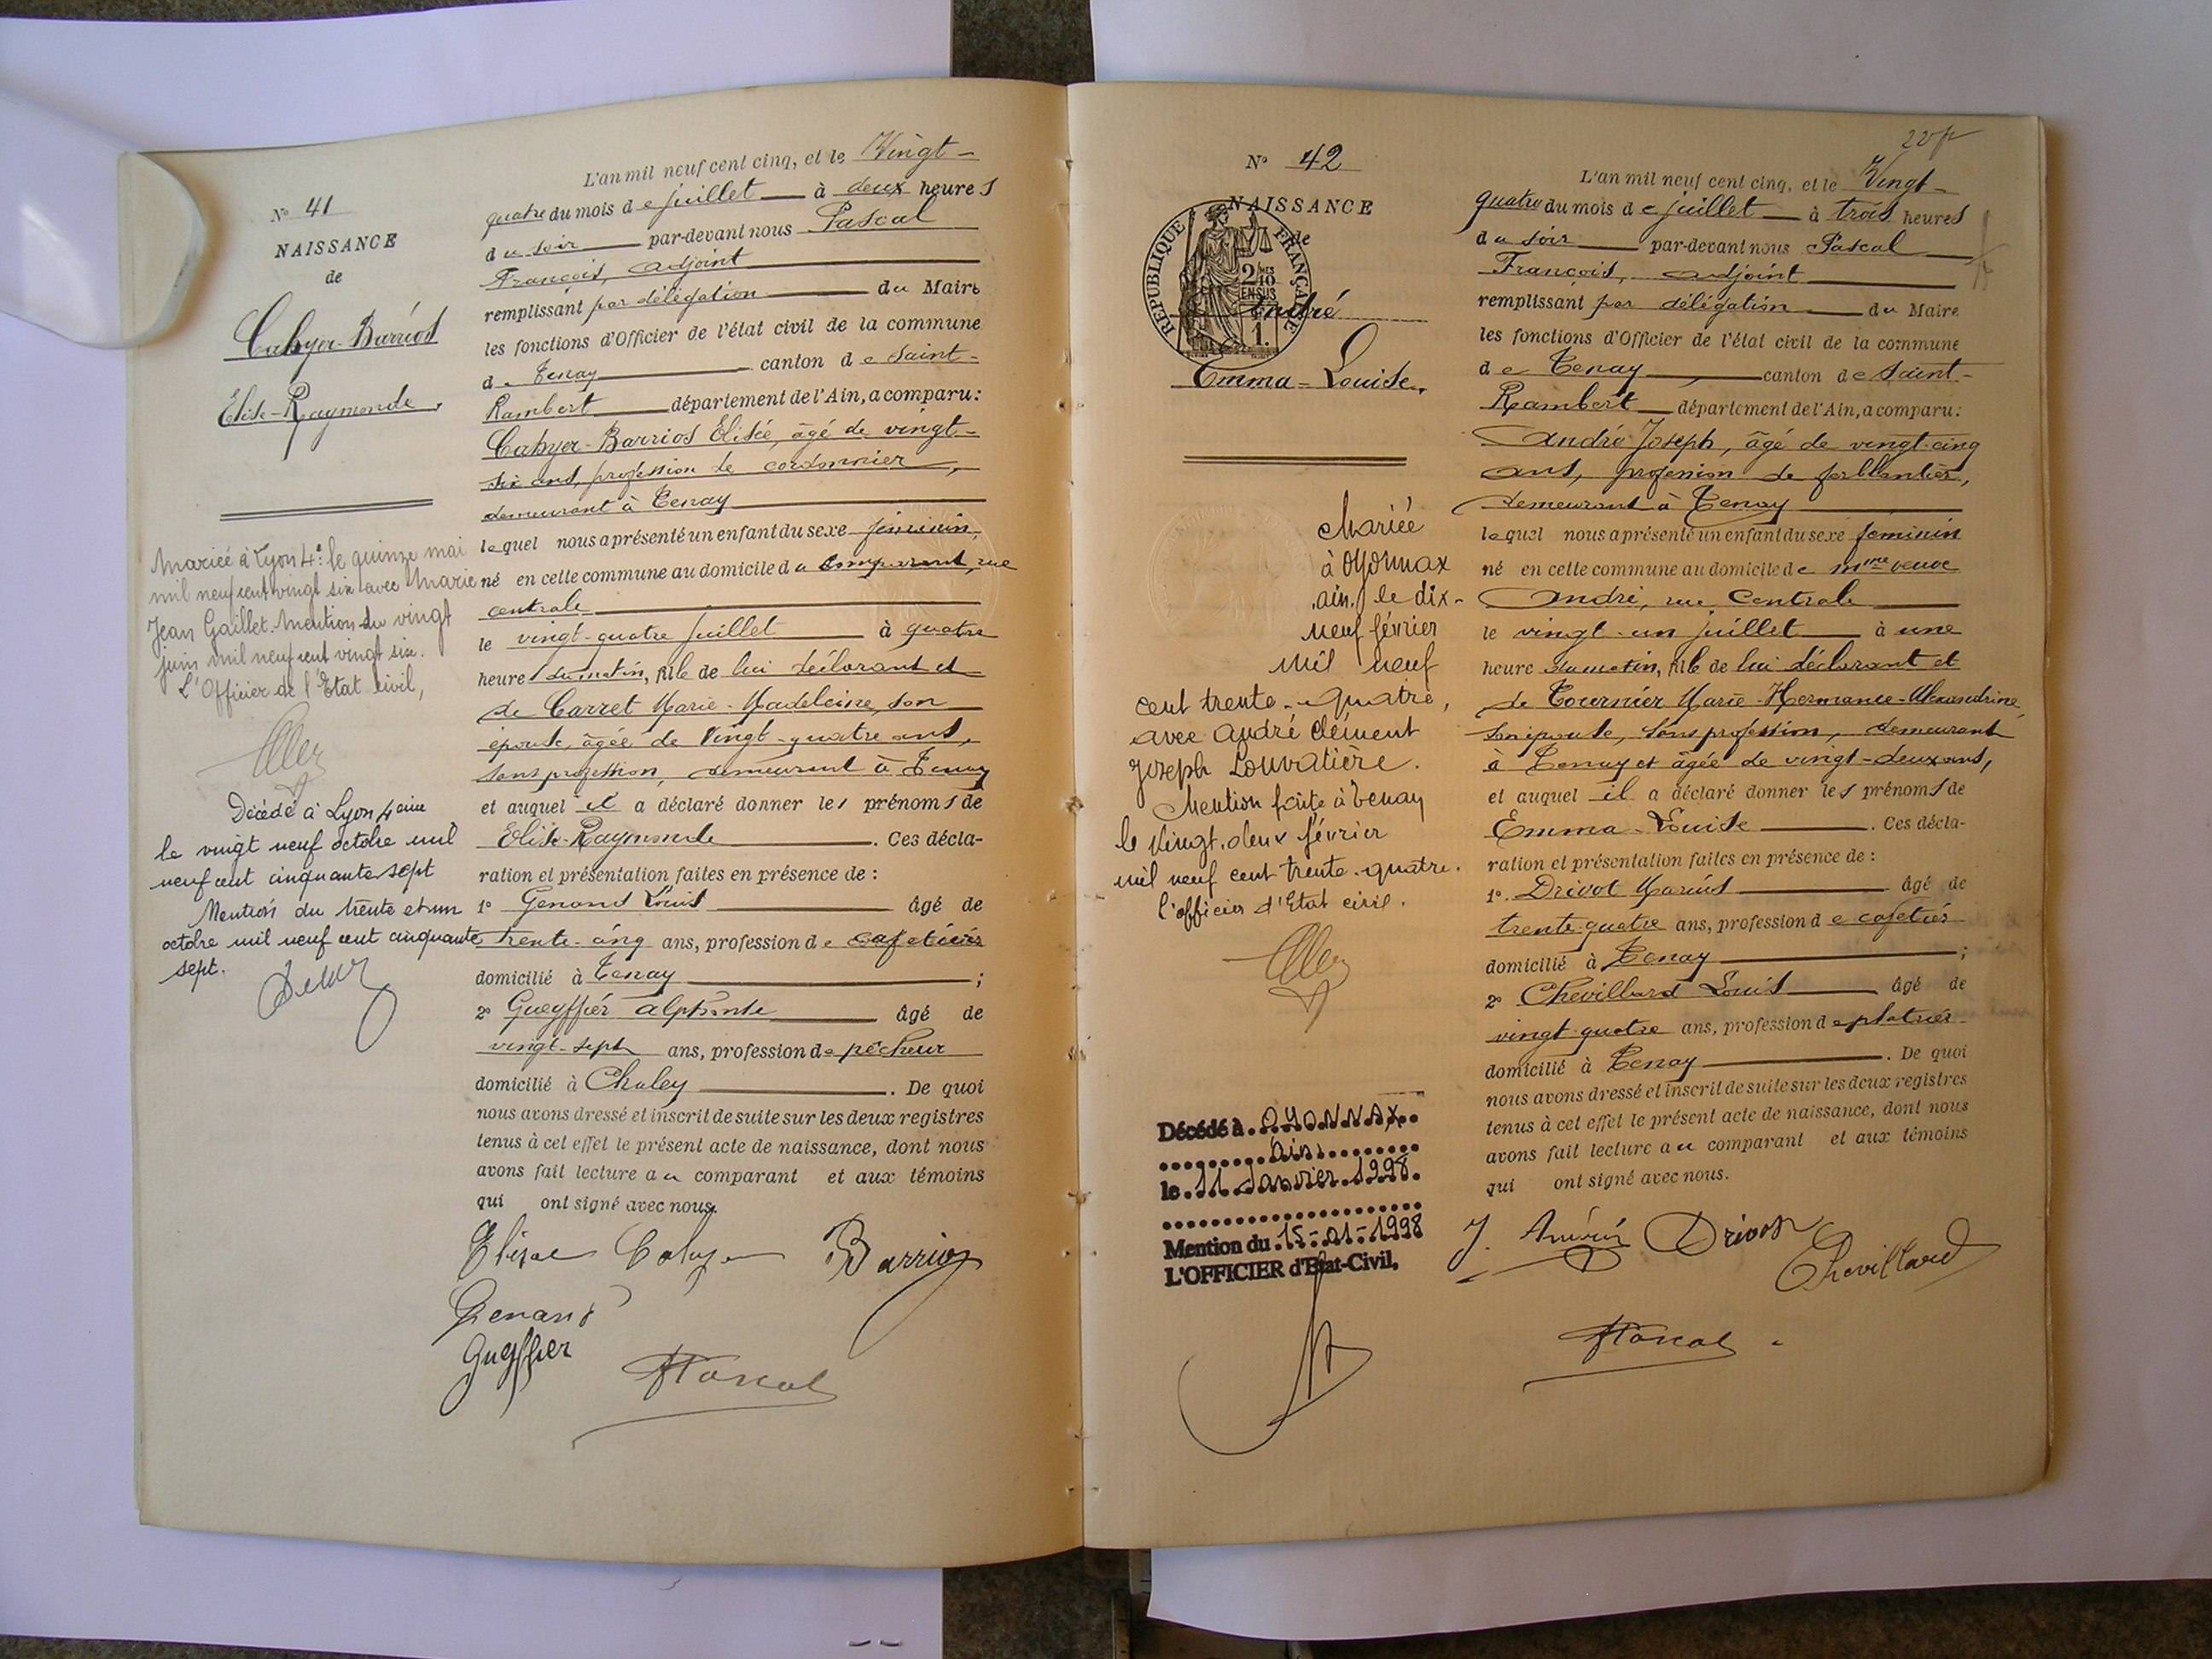 N° 41
NAISSANCE
de
Cahyer-Barrios
Elise-Raymonde,
Mariée à Lyon 4e le quinze mai
mil neuf cent vingt six avec Marie
Jean Gaillet. Mention du vingt
juin mil neuf cent vingt six.
L'Officier de l'Etat civil,
Décédé à Lyon 4eme
le vingt neuf octobre mil
neuf cent cinquante sept
Mention du trente et un
octobre mil neuf cent cinquante
sept.
L'an mil neuf cent cinq, et le Vingt-
quatre du mois de juillet à deux heures
du soir par-devant nous Pascal
François, adjoint
remplissant par délégation du Maire
les fonctions d'Officier de l'état civil de la commune
de Tenay canton de Saint-
Rambert département de l'Ain, a comparu:
Cahyer-Barrios Elisée, âgé de vingt-
six ans, profession de cordonnier,
demeurant à Tenay
lequel nous a présenté un enfant du sexe féminin,
né en cette commune au domicile du comparant, rue
centrale
le vingt-quatre juillet à quatre
heures du matin, fille de lui déclarant et
de Carret Marie-Madeleine, son
épouse, âgée de vingt-quatre ans,
sans profession, demeurant à Tenay
et auquel il a déclaré donner les prénoms de
Elise-Raymonde. Ces décla-
ration et présentation faites en présence de :
1° Genans Louis âgé de
trente-cinq ans, profession de cafetier
domicilié à Tenay ;
2° Gueyffier Alphonse âgé de
vingt-sept ans, profession de pêcheur
domicilié à Chaley. De quoi
nous avons dressé et inscrit de suite sur les deux registres
tenus à cet effet le présent acte de naissance, dont nous
avons fait lecture au comparant et aux témoins
qui ont signé avec nous.
Elisée Cahyer Barrios
Genans
Gueyffier
Pascal
N° 42
NAISSANCE
de
RÉPUBLIQUE FRANÇAISE
2/10 EN SUS
1.
André
Emma-Louise,
Mariée
à Oyonnax
Ain, le dix-
neuf février
mil neuf
cent trente-quatre,
avec André Clément
Joseph Louvatière.
Mention faite à Tenay
le vingt-deux février
mil neuf cent trente-quatre.
l'officier d'Etat civil.
Décédé à OYONNAX
Ain
le 11 Janvier 1998.
Mention du 15-01-1998
L'OFFICIER d'Etat-Civil,
L'an mil neuf cent cinq, et le Vingt-
quatre du mois de juillet à trois heures
du soir par-devant nous Pascal
François, adjoint
remplissant par délégation du Maire
les fonctions d'Officier de l'état civil de la commune
de Tenay canton de Saint-
Rambert département de l'Ain, a comparu:
André Joseph, âgé de vingt-cinq
ans, profession de ferblantier,
demeurant à Tenay
lequel nous a présenté un enfant du sexe féminin
né en cette commune au domicile de Mme veuve
André, rue Centrale
le vingt-un juillet à une
heure du matin, fille de lui déclarant et
de Tournier Marie-Hermance-Alexandrine
son épouse, sans profession, demeurant
à Tenay et âgée de vingt-deux ans,
et auquel il a déclaré donner les prénoms de
Emma-Louise. Ces décla-
ration et présentation faites en présence de :
1° Drivot Marius âgé de
trente-quatre ans, profession de cafetier
domicilié à Tenay ;
2° Chevillard Louis âgé de
vingt-quatre ans, profession de plâtrier
domicilié à Tenay. De quoi
nous avons dressé et inscrit de suite sur les deux registres
tenus à cet effet le présent acte de naissance, dont nous
avons fait lecture au comparant et aux témoins
qui ont signé avec nous.
J. André Drivot
Chevillard
Pascal